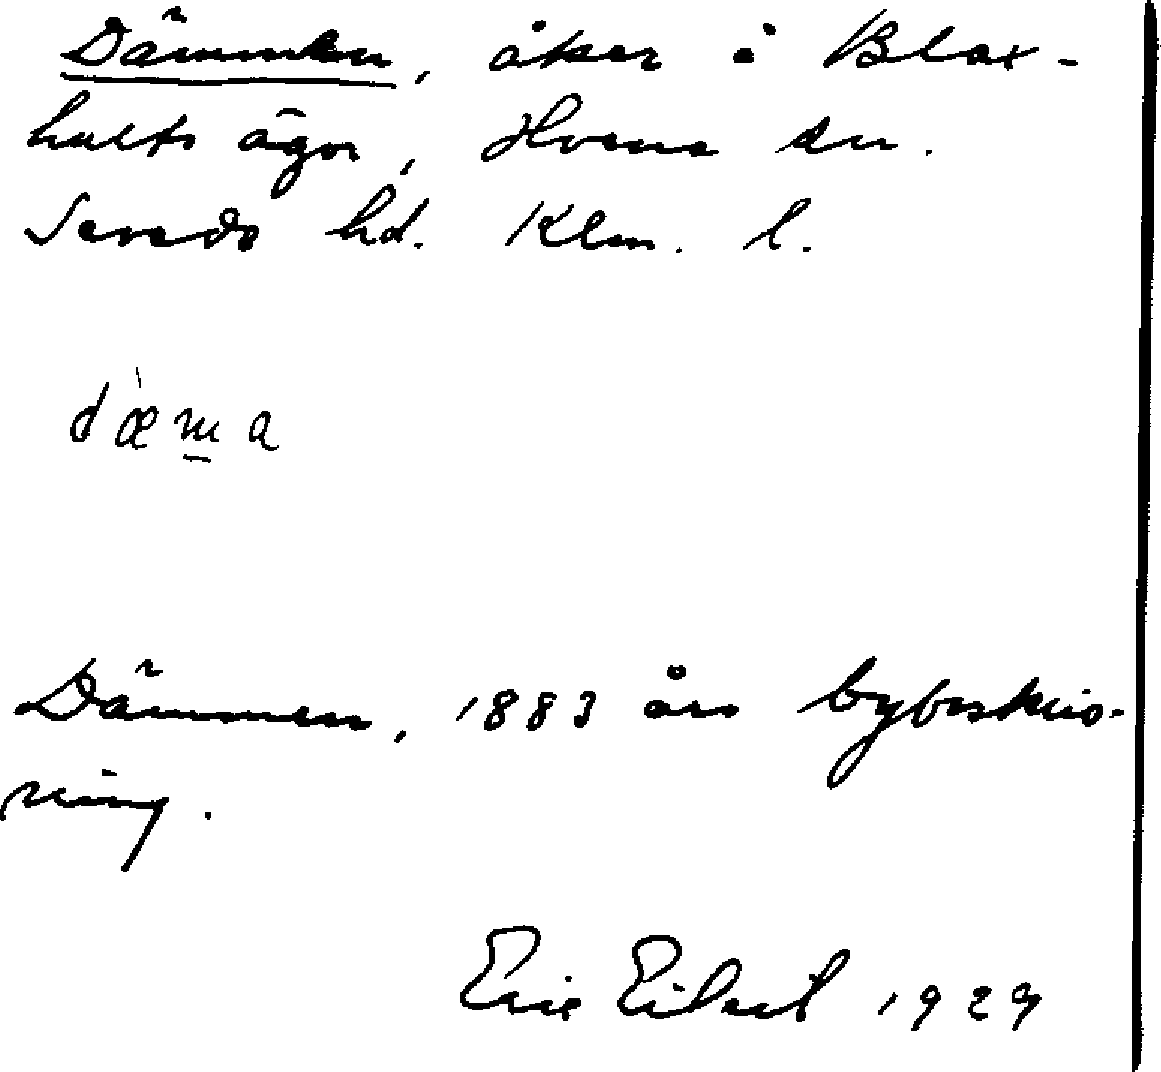 Dämmen, åker i Blax-
hults ägor, Hvena sn.
Sevede hd. Klm. l.
dæ̀m̲a
Dämmen, 1883 års bybeskriv-
ning.
Eric Eilert 1929